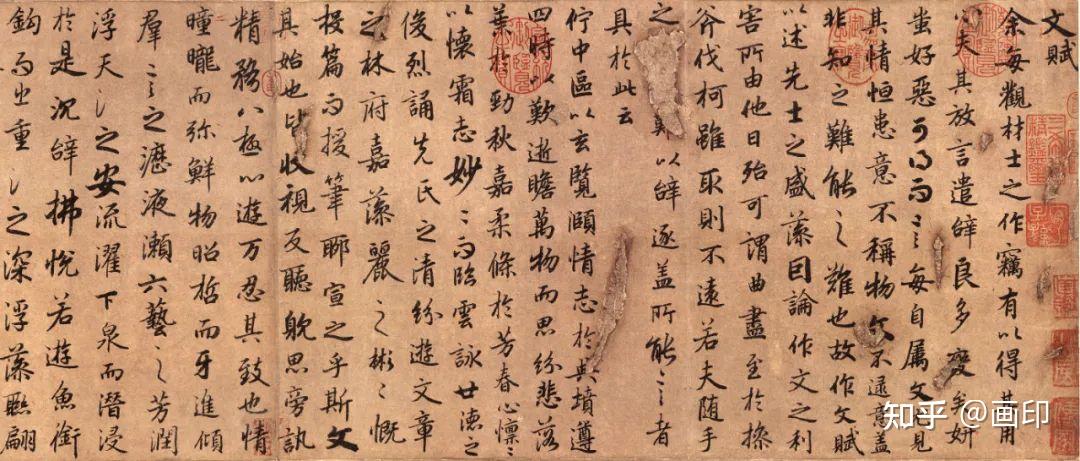 文賦
余每觀材士之作竊有以得其用
心夫其放言遣辭良多變矣妍
蚩好惡可得而言每自属文尤見
其情恒患意不稱物文不逮意盖
非知之難能之難也故作文賦
以述先士之盛藻因論作文之利
害所由他日殆可謂曲盡至於操
斧伐柯雖取則不遠若夫随手
之難以辭逐盖所能言之者
具於此云
佇中區以玄覽頤情志於典墳遵
四時以歎逝瞻萬物而思紛悲落
葉於勁秋嘉柔條於芳春心懍〻
以懷霜志妙〻而臨雲詠世德之
俊烈誦先民之清紛遊文章
之林府嘉藻麗之彬〻慨
投篇而援筆聊宣之乎斯文
其始也皆收視反聽躭思旁訊
精騖八極心遊万忍其致也情
曈曨而弥鮮物昭晢而牙進傾
羣言之瀝液漱六藝之芳潤
浮天淵之安流濯下泉而潛浸
於是沉辭拂悅若遊魚銜
鈎而出重淵之深浮藻聯翩
知乎 @画印